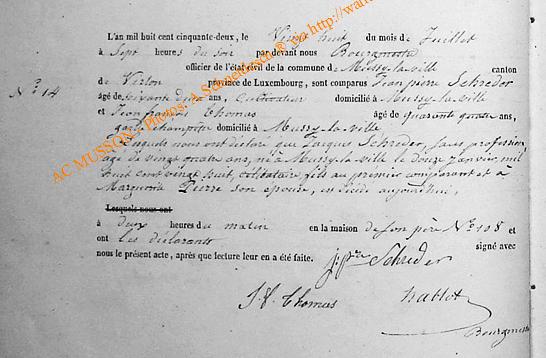 L'an mil huit cent cinquante-deux, le Vingt huit du mois de Juillet
à Sept heures du soir par devant nous Bourgmestre
officier de l'état civil de la commune de Mussy-la-ville canton
de Virton province de Luxembourg, sont comparus Jean pierre Schreder
N° 14
âgé de ans, Cultivateur domicilié à Mussy-la-ville
et Jean françois Thomas âgé de quarante quatre ans,
garde champêtre domicilié à Mussy-la-ville
Lesquels nous ont déclaré que Jacques Schreder, sans profession,
âgé de vingt quatre ans, né à Mussy-la-ville le douze Janvier mil
huit cent vingt huit, célibataire, fils au premier comparant et à
Marguerite Pierre son épouse, est décédé aujourd'hui,
Lesquels nous ont
à deux heures du matin en la maison de son père N° 108 et
ont les déclarants signé avec
nous le présent acte, après que lecture leur en a été faite.
Schreder
J. f. Thomas
Bourgmestre
AC MUSSON - Photos: A Schneidesch ® via http://